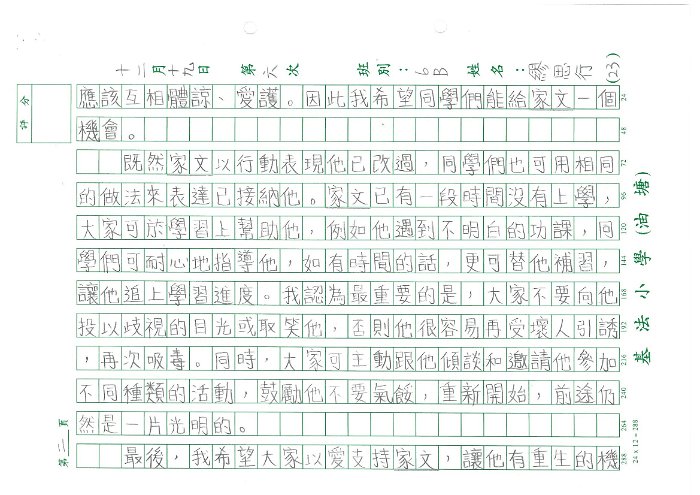 十二月十九日 第六次 班別：6B 姓名：思行(23)
評分
應該互相體諒、愛護。因此我希望同學們能給家文一個 24
機會。 48
既然家文以行動表現他已改過，同學們也可用相同 72
的做法來表達已接納他。家文已有一段時間沒有上學， 96
大家可於學習上幫助他，例如他遇到不明白的功課，同 120
學們可耐心地指導他，如有時間的話，更可替他補習， 144
讓他追上學習進度。我認為最重要的是，大家不要向他 168
投以歧視的目光或取笑他，否則他很容易再受壞人引誘 192
，再次吸毒。同時，大家可主動跟他傾談和邀請他參加 216
不同種類的活動，鼓勵他不要氣餒，重新開始，前途仍 240
然是一片光明的。 264
最後，我希望大家以愛支持家文，讓他有重生的機 288
第二頁
24 x 12 = 288
基法小學(油塘)